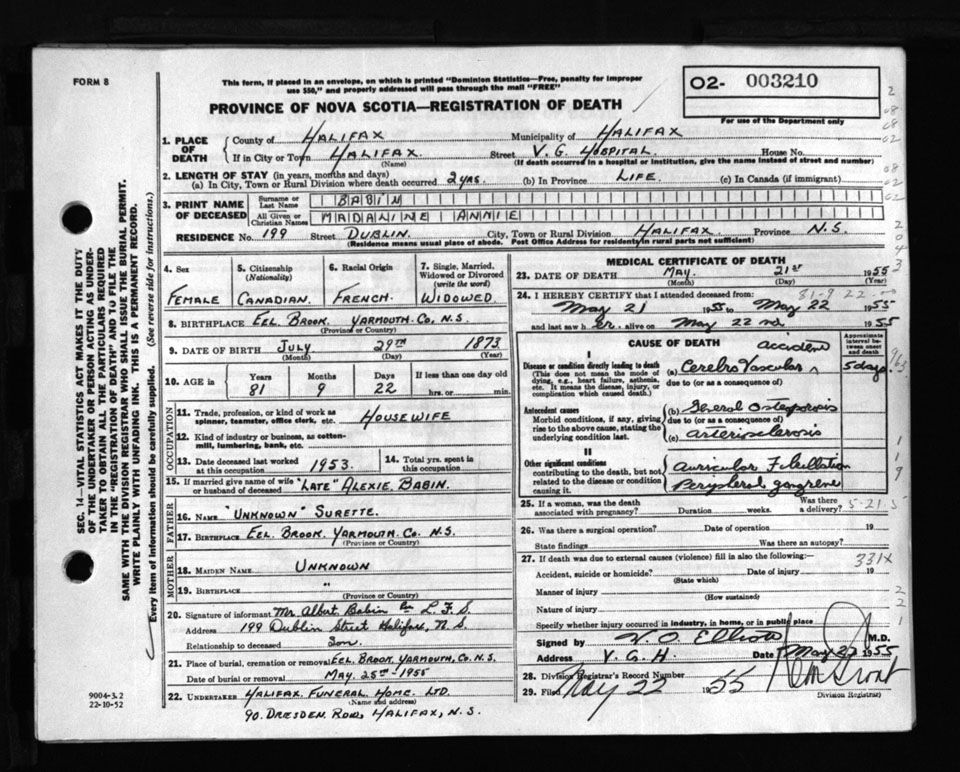 FORM 8
This form, if placed in an envelope, on which is printed "Dominion Statistics—Free, penalty for improper
use $50," and properly addressed will pass through the mail "FREE"
O2- 003210
For use of the Department only
PROVINCE OF NOVA SCOTIA—REGISTRATION OF DEATH
1. PLACE OF DEATH
County of HALIFAX Municipality of HALIFAX
If in City or Town HALIFAX. Street V. G. HOSPITAL. House No.
(Name) (If death occurred in a hospital or institution, give the name instead of street and number)
2. LENGTH OF STAY (in years, months and days)
(a) In City, Town or Rural Division where death occurred 2 yrs. (b) In Province LIFE. (c) In Canada (if immigrant)
3. PRINT NAME OF DECEASED
Surname or Last Name BABIN
All Given or Christian Names MADALINE ANNIE
RESIDENCE No. 199 Street DUBLIN. City, Town or Rural Division HALIFAX. Province N.S.
(Residence means usual place of abode. Post Office Address for residents in rural parts not sufficient)
4. Sex
FEMALE
5. Citizenship
(Nationality)
CANADIAN.
6. Racial Origin
FRENCH.
7. Single, Married, Widowed or Divorced
(write the word)
WIDOWED
8. BIRTHPLACE EEL BROOK. YARMOUTH. CO. N.S.
(Province or Country)
9. DATE OF BIRTH JULY 29TH 1873.
(Month) (Day) (Year)
10. AGE in
Years Months Days If less than one day old
81 9 22 hrs. or min.
OCCUPATION
11. Trade, profession, or kind of work as
spinner, teamster, office clerk, etc. HOUSEWIFE
12. Kind of industry or business, as cotton-
mill, lumbering, bank, etc.
13. Date deceased last worked
at this occupation 1953.
14. Total yrs. spent in
this occupation
15. If married give name of wife
or husband of deceased "LATE" ALEXIE. BABIN.
FATHER
16. Name "UNKNOWN" SURETTE.
17. Birthplace EEL. BROOK. YARMOUTH. CO. N.S.
(Province or Country)
MOTHER
18. Maiden Name UNKNOWN
19. Birthplace "
(Province or Country)
20. Signature of informant Mr. Albert Babin per L. F. S.
Address 199 Dublin Street Halifax, N. S.
Relationship to deceased Son.
21. Place of burial, cremation or removal EEL. BROOK. YARMOUTH, CO. N.S.
Date of burial or removal MAY. 25TH 1955
22. UNDERTAKER HALIFAX. FUNERAL. HOME. LTD.
(Name and address)
90. DRESDEN. ROW, HALIFAX, N.S.
9004-3.2
22-10-52
SEC. 14—VITAL STATISTICS ACT MAKES IT THE DUTY
OF THE UNDERTAKER OR PERSON ACTING AS UNDER-
TAKER TO OBTAIN ALL THE PARTICULARS REQUIRED
IN THE "REGISTRATION OF DEATH" AND TO FILE THE
SAME WITH THE DIVISION REGISTRAR WHO SHALL ISSUE THE BURIAL PERMIT.
WRITE PLAINLY WITH UNFADING INK. THIS IS A PERMANENT RECORD.
Every item of information should be carefully supplied. (See reverse side for instructions.)
MEDICAL CERTIFICATE OF DEATH
23. DATE OF DEATH MAY. 21st 1955
(Month) (Day) (Year)
81-9 22
24. I HEREBY CERTIFY that I attended deceased from:
May 21 1955 to May 22 1955
and last saw her alive on May 22nd 1955
CAUSE OF DEATH
Approximate interval between onset and death
I
Disease or condition directly leading to death
(This does not mean the mode of
dying, e.g., heart failure, asthenia,
etc. It means the disease, injury, or
complication which caused death.)
(a) Cerebro Vascular accident 5 days.
due to (or as a consequence of)
Antecedent causes
Morbid conditions, if any, giving
rise to the above cause, stating the
underlying condition last.
(b) General Osteoporosis
due to (or as a consequence of)
(c) arteriosclerosis
II
Other significant conditions
contributing to the death, but not
related to the disease or condition
causing it.
Auricular Fibrillation
Peripheral gangrene
25. If a woman, was the death
associated with pregnancy? Duration weeks. Was there a delivery? 5-21-5
26. Was there a surgical operation? Date of operation 19
State findings Was there an autopsy?
27. If death was due to external causes (violence) fill in also the following: 331X
Accident, suicide or homicide? Date of injury 19
(State which)
Manner of injury
(How sustained)
Nature of injury
Specify whether injury occurred in industry, in home, or in public place
Signed by V. O. Elliott M.D.
Address V. G. H. Date May 22 1955
28. Division Registrar's Record Number
29. Filed May 22 1955
Division Registrar.